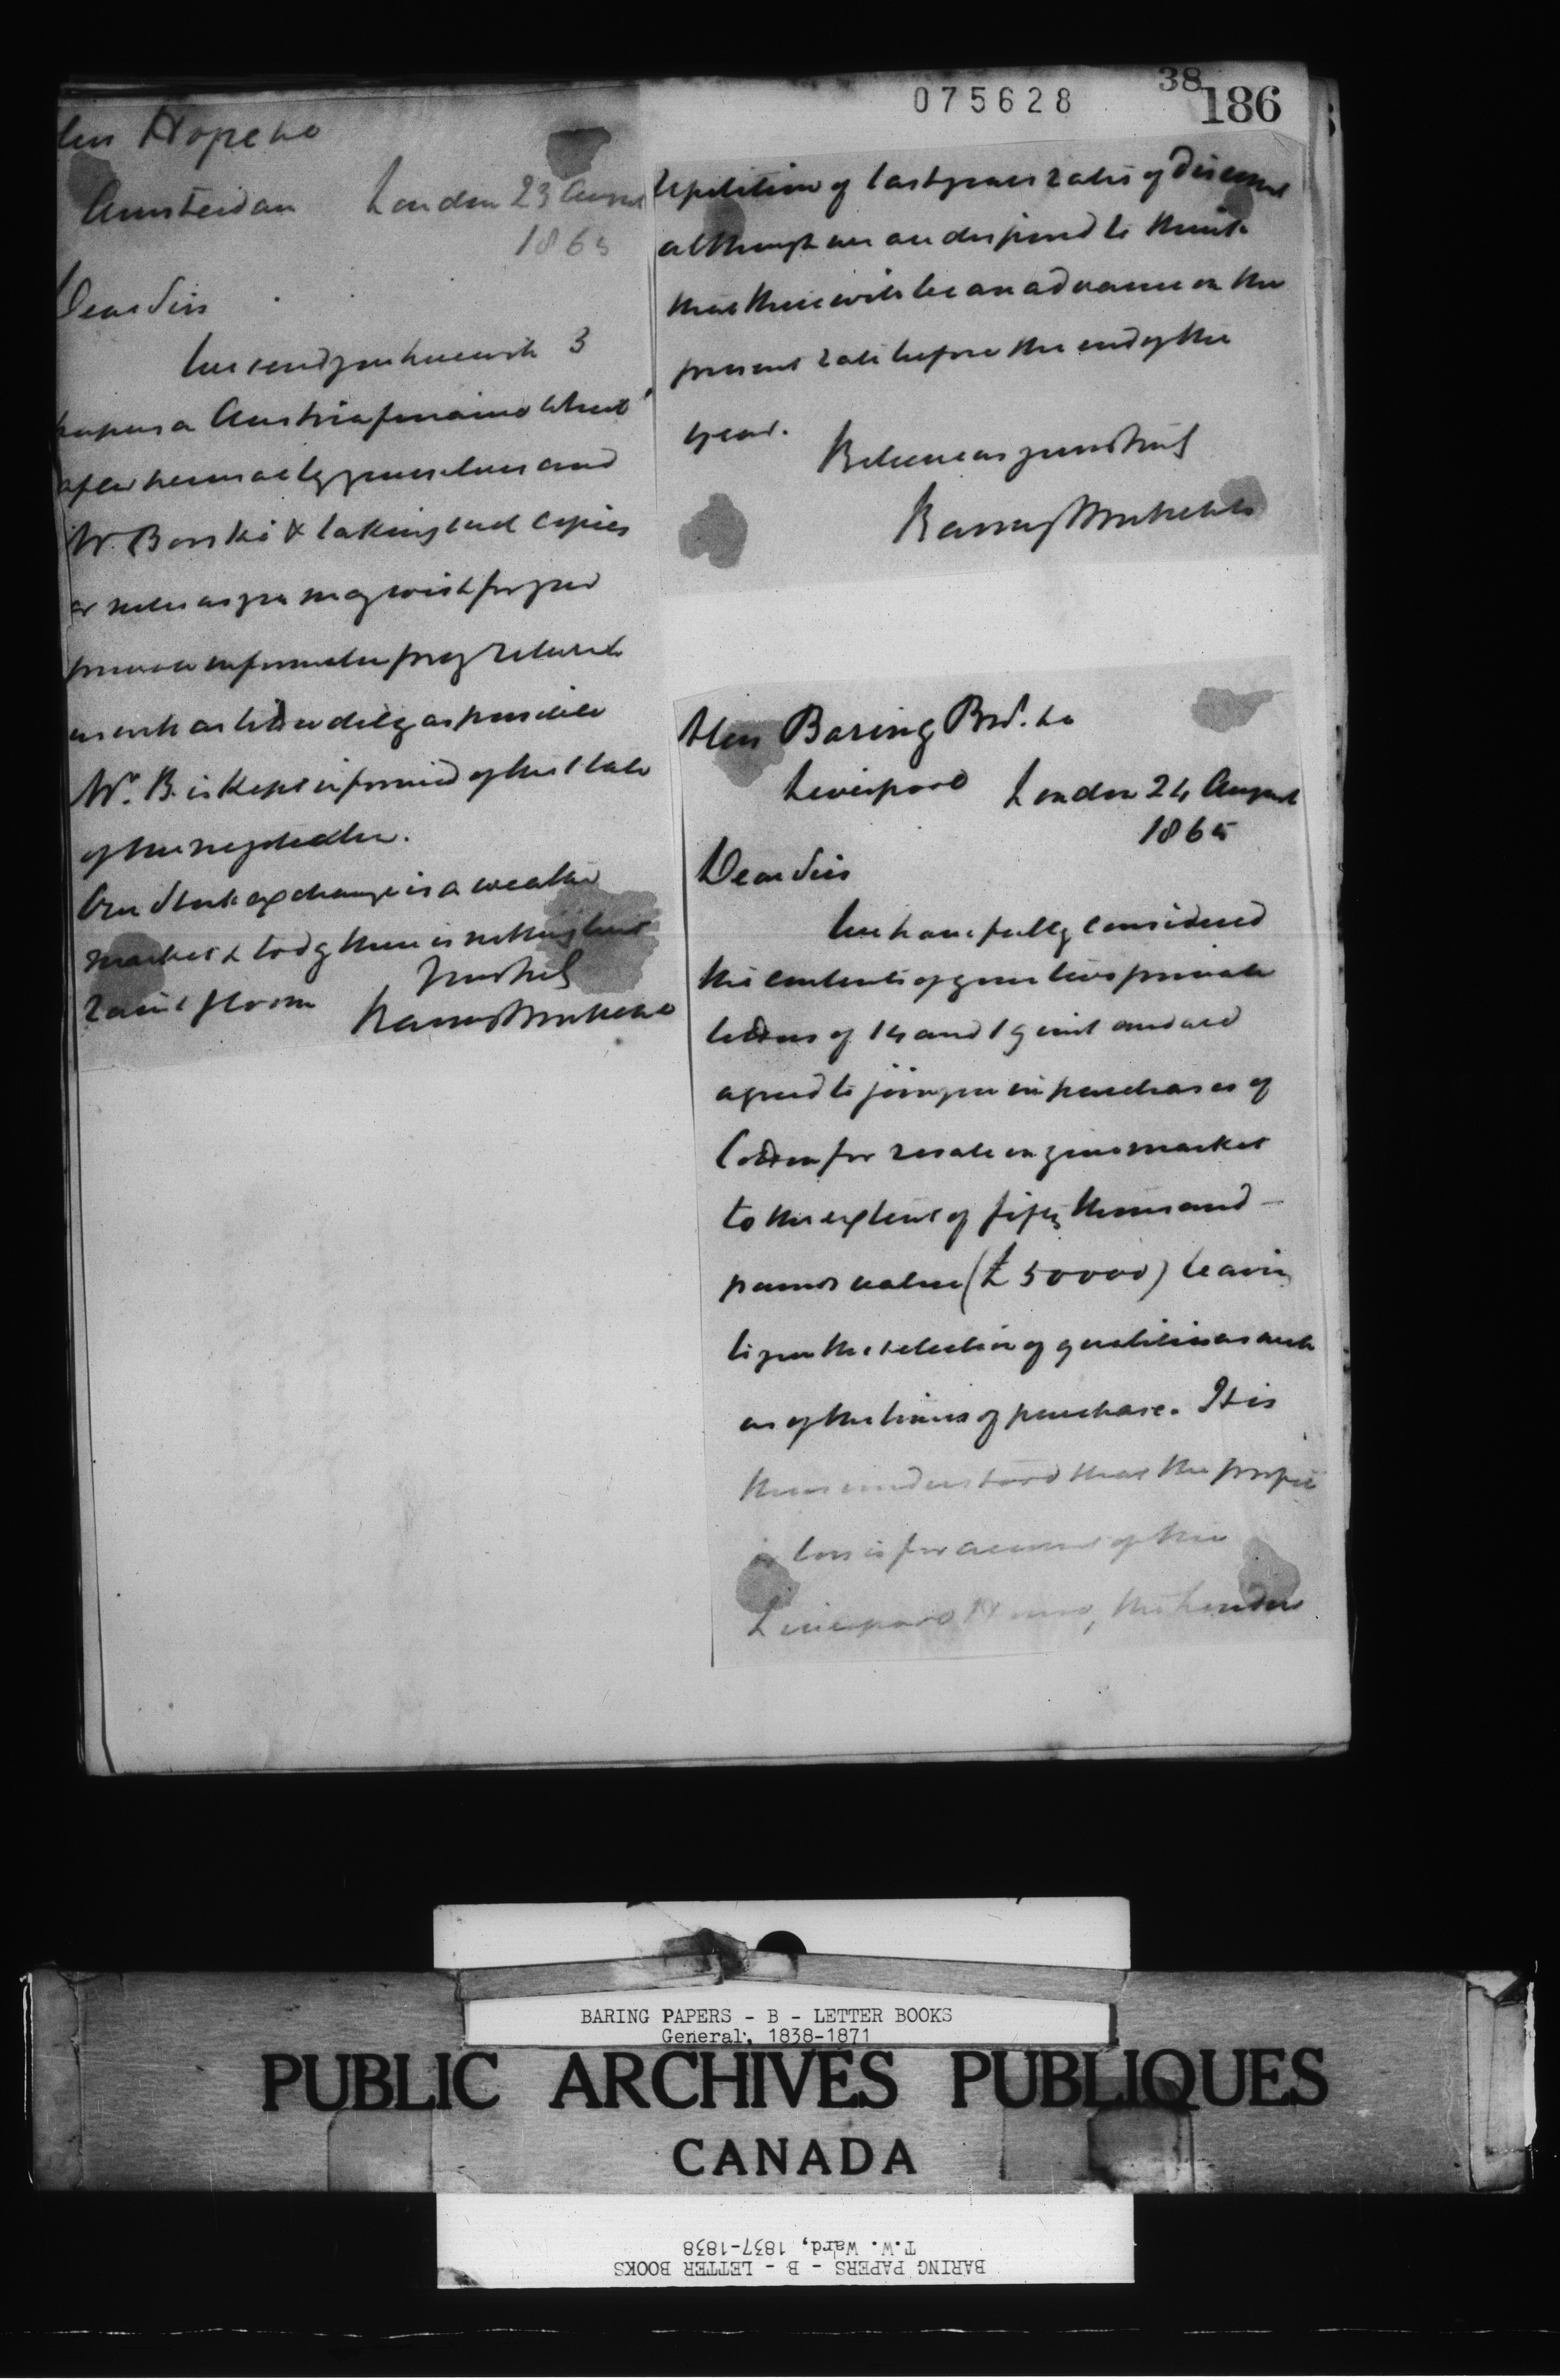 075628
38
186
Hope & Co
Amsterdam London 23 August
1865
Dear Sirs
We send you herewith 3
papers on Austrian finance which
after perusal by yourselves and
Mr. Borski & taking such copies
or notes as you may wish for your
private information pray return to
us with as little delay as possible
Mr. B. is kept informed of the state
of the negotiation.
Our Stock exchange is a weaker
market & today there is nothing but
rain & gloom
Yours truly
Baring Brothers & Co
repetition of last years rates of discount
although we are disposed to think
that there will be an advance on the
present rate before the end of the
year.
Believe us yours truly
Baring Brothers & Co
Mess Baring Bros. & Co
Liverpool London 24 August
1865
Dear Sirs
We have fully considered
the contents of your two private
letters of 14 and 19 inst and are
agreed to join you in purchases of
Cotton for resale in your market
to the extent of fifty thousand
pounds value (£50000) leaving
to you the selection of qualities as well
as of the times of purchase. It is
thus understood that the profit
or loss is for account of the
Liverpool House, the London
BARING PAPERS - B - LETTER BOOKS
General, 1838-1871
PUBLIC ARCHIVES PUBLIQUES
CANADA
BARING PAPERS - B - LETTER BOOKS
T.W. Ward, 1837-1838